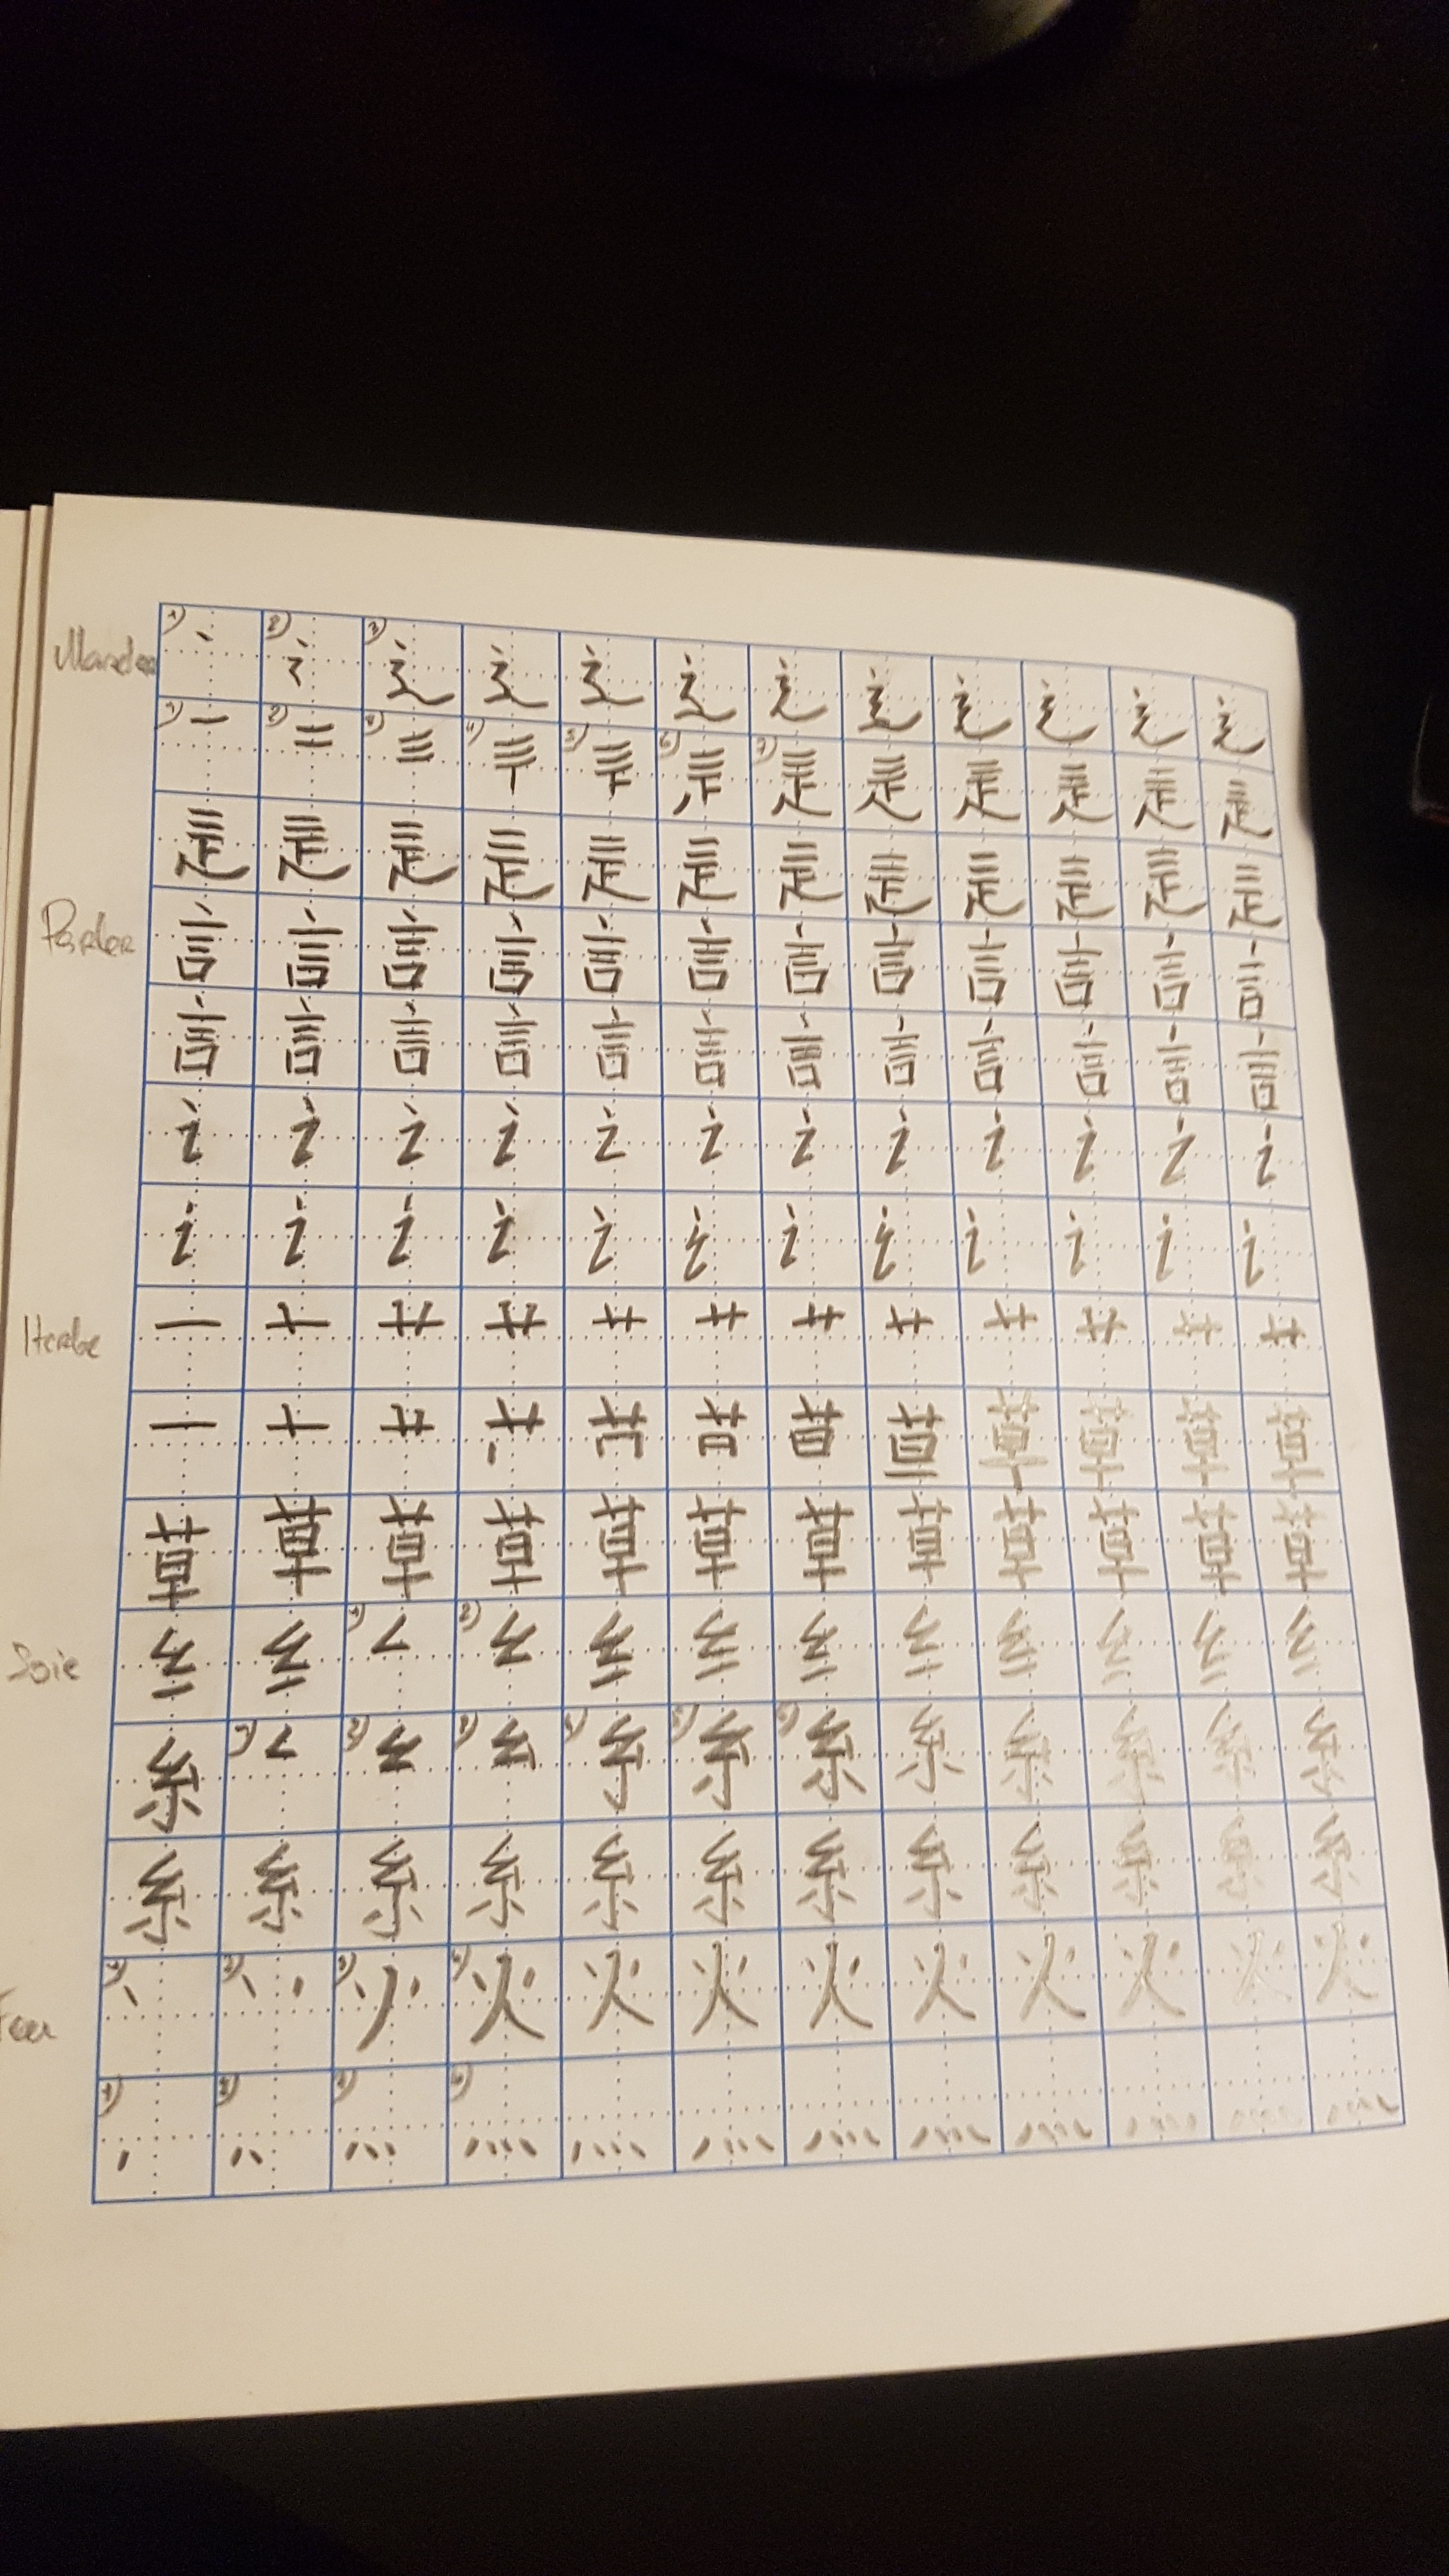 Marcher 1) 丶 2) 3) 辶 辶 辶 辶 辶 辶 辶 辶 辶 辶
1) 一 2) 二 3) 三 4) 5) 6) 7) 辵 辵 辵 辵 辵 辵
辵 辵 辵 辵 辵 辵 辵 辵 辵 辵 辵 辵
Parler 言 言 言 言 言 言 言 言 言 言 言 言
言 言 言 言 言 言 言 言 言 言 言 言
讠 讠 讠 讠 讠 讠 讠 讠 讠 讠 讠 讠
讠 讠 讠 讠 讠 讠 讠 讠 讠 讠 讠 讠
Herbe 一 十 艹 艹 艹 艹 艹 艹 艹 艹 艹 艹
一 十 艹 草 草 草 草
草 草 草 草 草 草 草 草 草 草 草 草
Soie 纟 纟 1) 2) 纟 纟 纟 纟 纟 纟 纟 纟
糸 1) 2) 3) 4) 5) 6) 糸 糸 糸 糸 糸 糸
糸 糸 糸 糸 糸 糸 糸 糸 糸 糸 糸 糸
Feu 1) 丶 2) 3) 4) 火 火 火 火 火 火 火 火 火
1) 2) 3) 4) 灬 灬 灬 灬 灬 灬 灬 灬 灬